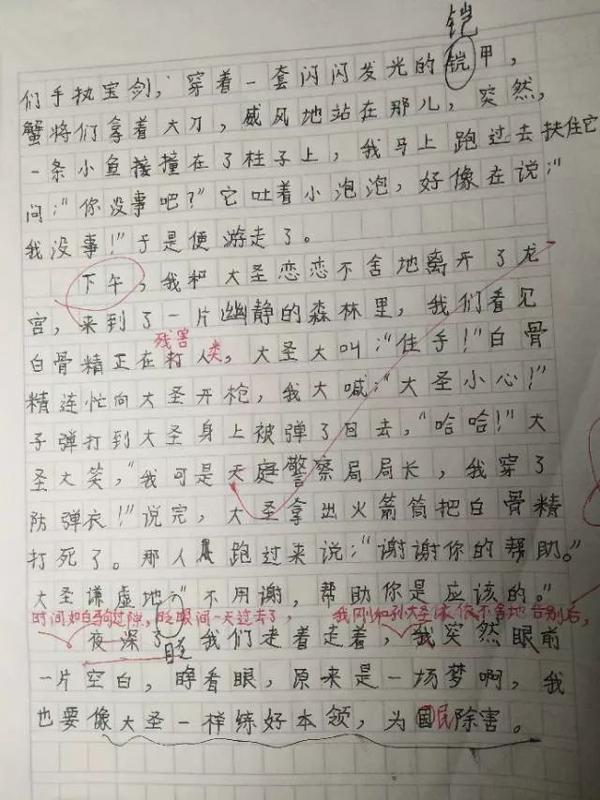 铠
们手执宝剑，穿着一套闪闪发光的铠甲，
蟹将们拿着大刀，威风地站在那儿，突然，
一条小鱼接撞在了柱子上，我马上跑过去扶住它
问：“你没事吧？”它吐着小泡泡，好像在说：“
我没事！”于是便游走了。
下午，我和大圣恋恋不舍地离开了龙
宫，来到了一片幽静的森林里，我们看见
残害
白骨精正在打人类，大圣大叫：“住手！”白骨
精连忙向大圣开枪，我大喊：“大圣小心！”
子弹打到大圣身上被弹了回去，“哈哈！”大
圣大笑，“我可是天庭警察局局长，我穿了
防弹衣！”说完，大圣拿出火箭筒把白骨精
打死了。那人跑过来说：“谢谢你的帮助。”
大圣谦虚地：“不用谢，帮助你是应该的。”
时间如白驹过隙，眨眼间一天过去了，我刚和孙大圣依依不舍地告别后，
夜深了，我们走着走着，我突然眼前
睁
一片空白，睁看眼，原来是一场梦啊，我
也要像大圣一样练好本领，为国民除害。